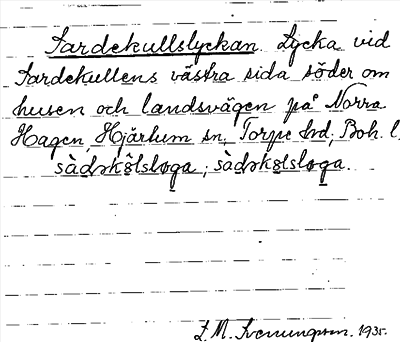 Sardekullslyckan. Lycka vid
Sardekullens västra sida söder om
husen och landsvägen på Norra
Hagen, Hjärtum sn, Torpe hd, Boh. l.
sàdskölsloga; sàdskölsloga.
1935.